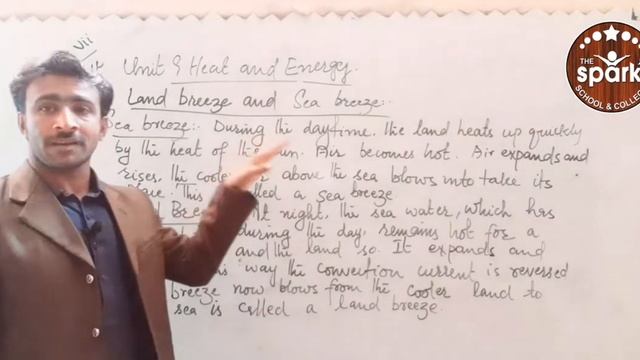 vii
Unit 9 Heat and Energy.
Land breeze and Sea breeze:-
Sea breeze:- During the daytime. the land heats up quickly
by the heat of the sun. Air becomes hot. Air expands and
rises, the cooler above the sea blows into take its
This called a sea breeze
At night, the sea water, which has
during the day, remains hot for a
and the land so. It expands and
way the convection current is reversed
breeze now blows from the cooler land to
sea is called a land breeze.
THE
spark
SCHOOL & COLLEG